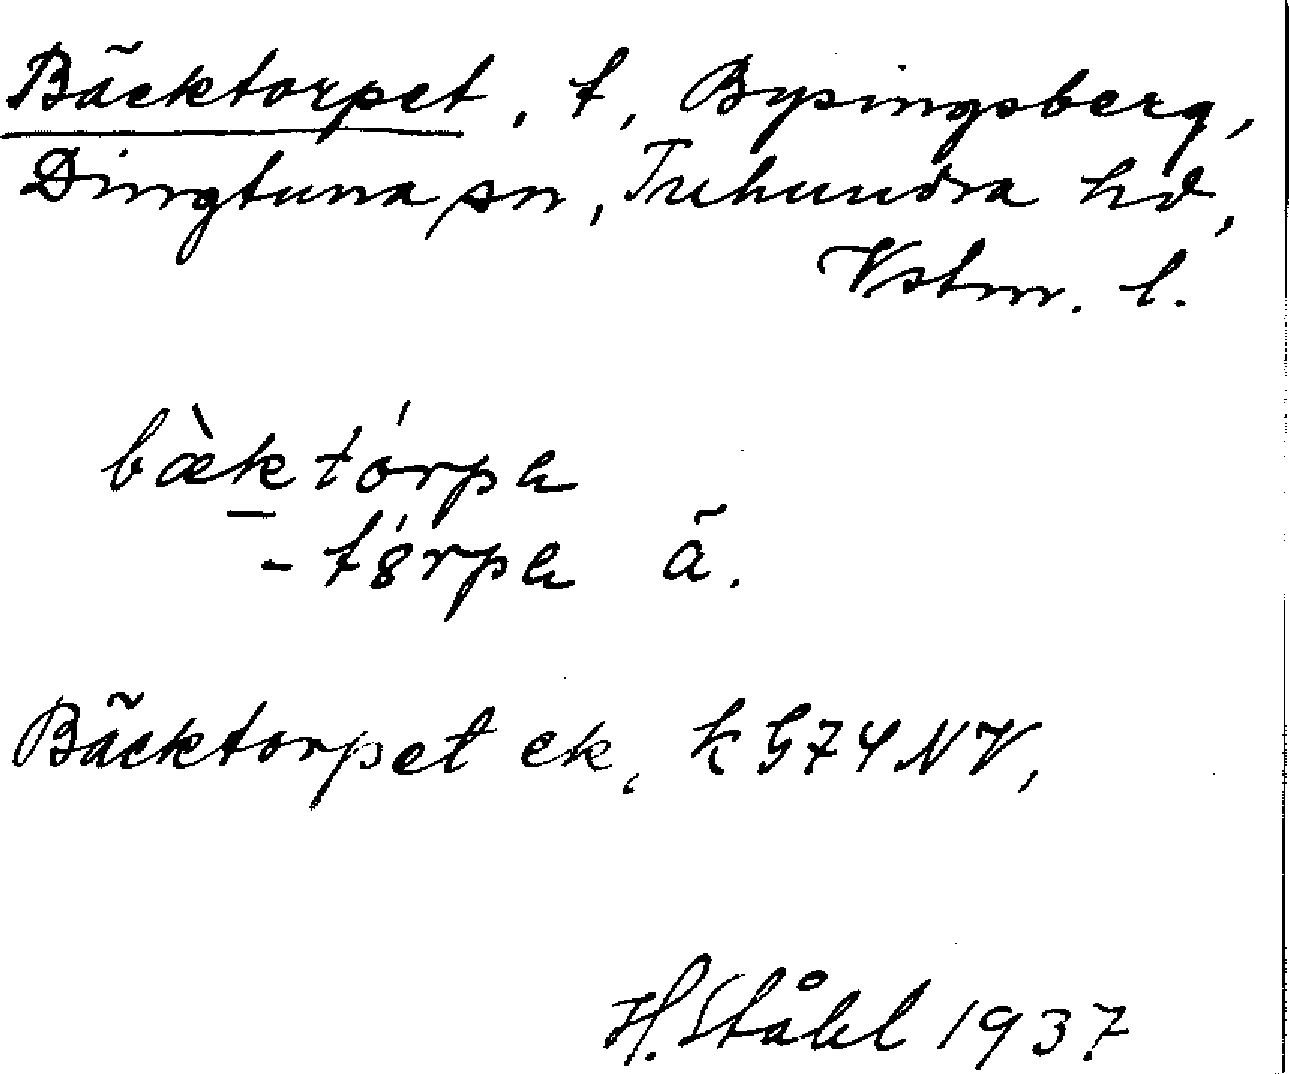 Bäcktorpet, t, Bysingsberg,
Dingtuna sn, Tuhundra hd,
Vstm. l.
bæ̀którpa
-tórpa ä.
Bäcktorpet ek, k G74NV,
H. Ståhl 1937